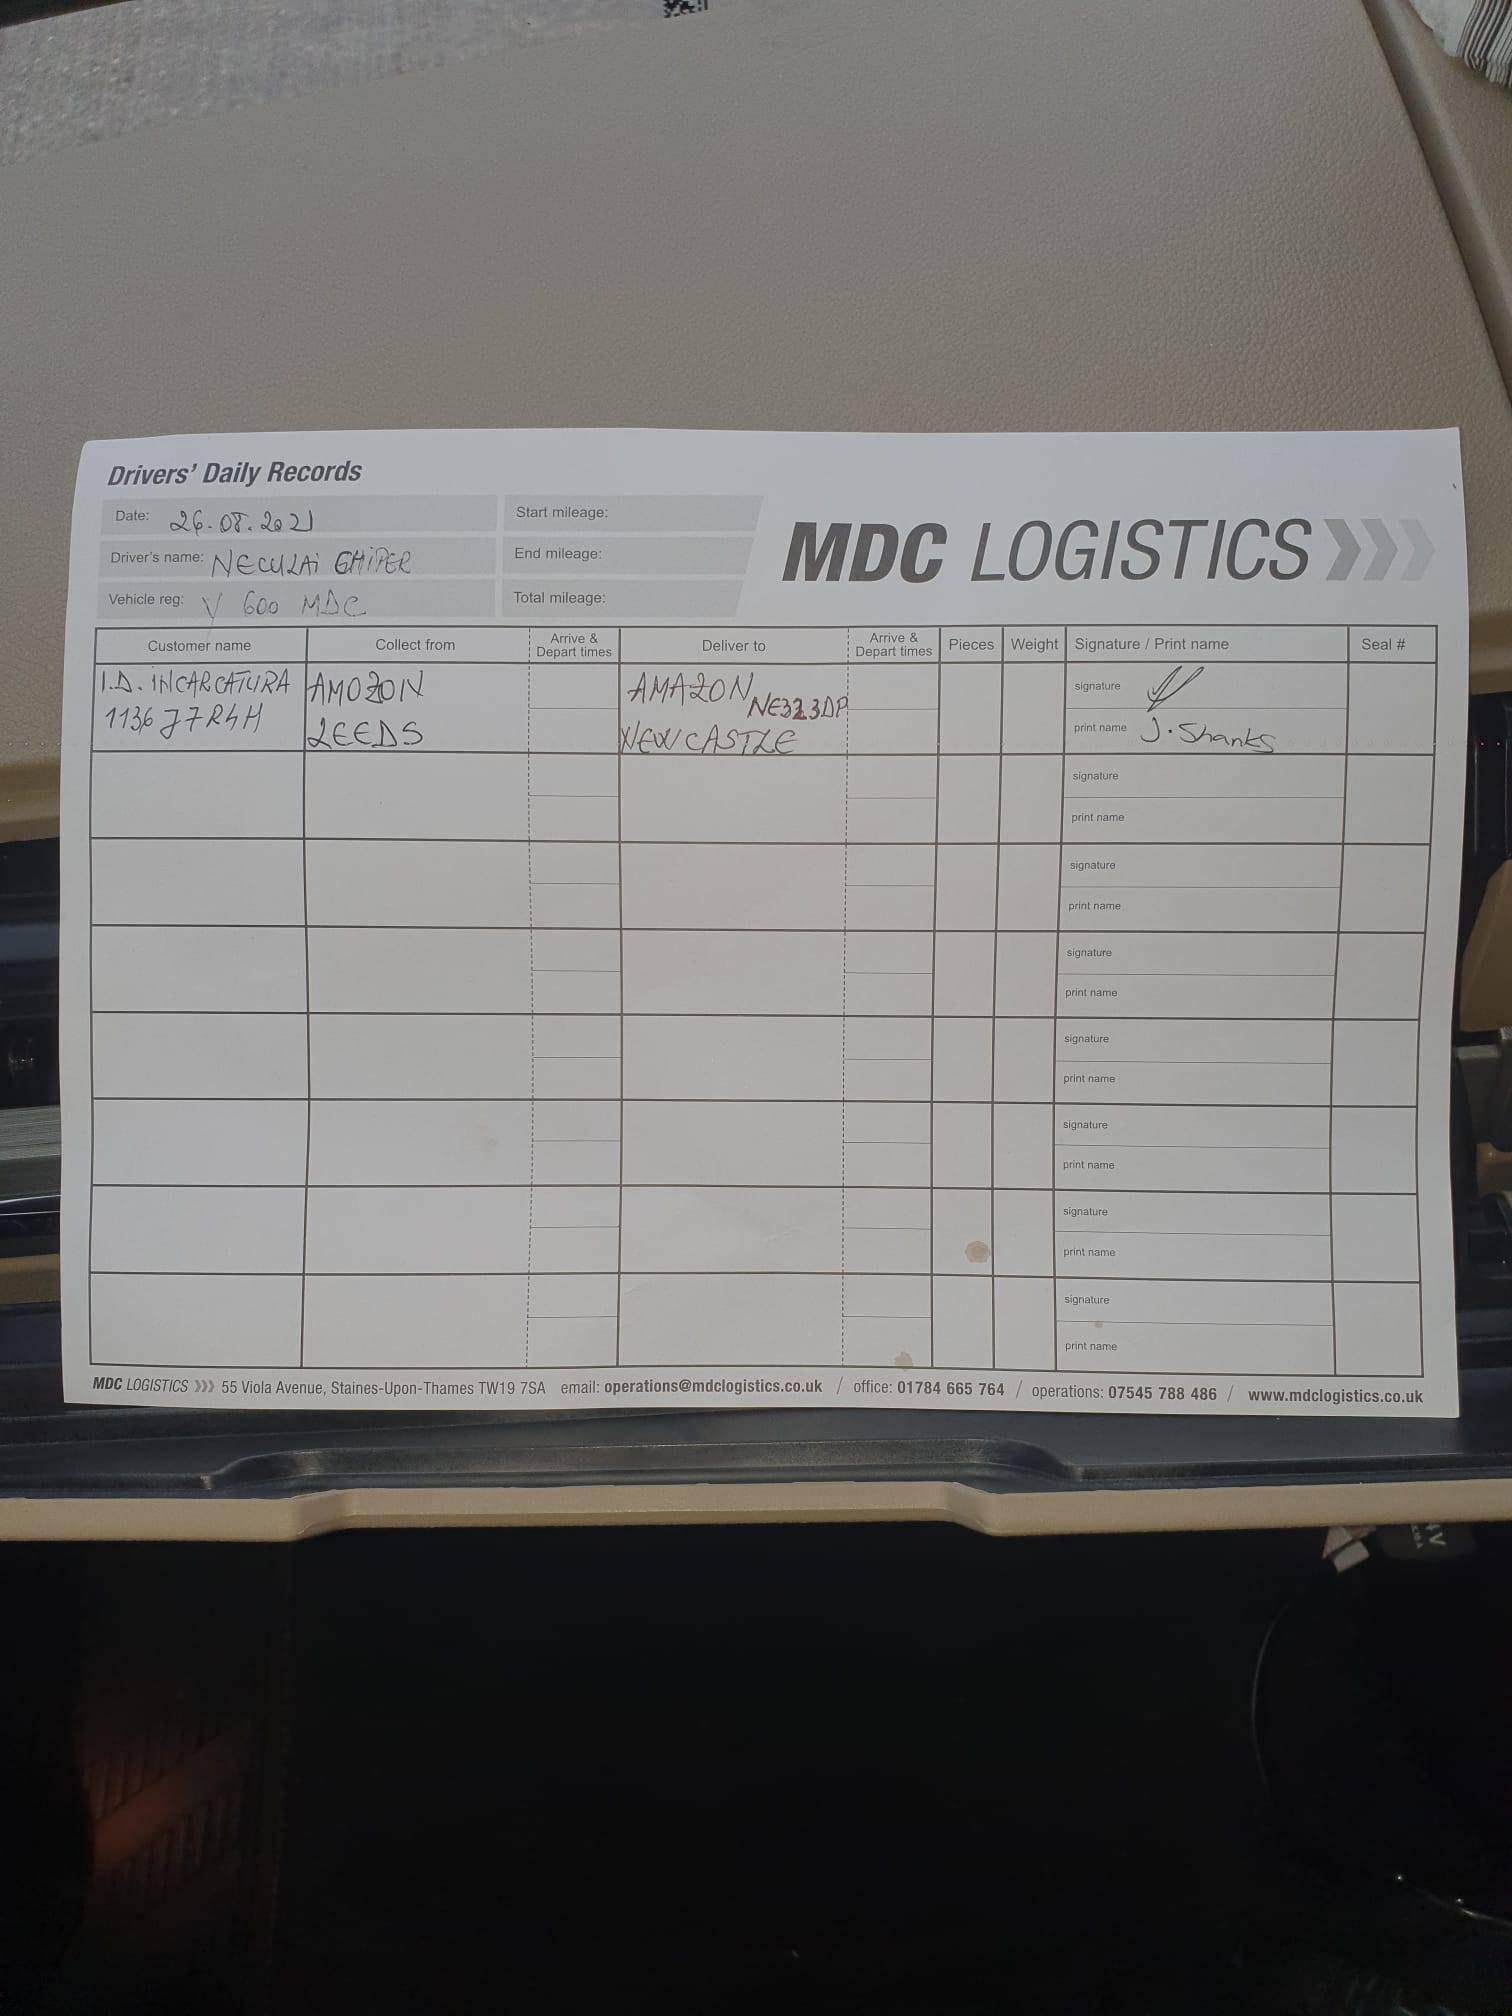 Drivers' Daily Records
Date: 26.08.2021
Start mileage:
MDC LOGISTICS
Driver's name: NECULAI GHIPER
End mileage:
Vehicle reg: V 600 MDC
Total mileage:
Customer name
Collect from
Arrive &
Depart times
Deliver to
Arrive &
Depart times
Pieces
Weight
Signature / Print name
Seal #
I.D. INCARCATURA
1136J7R4H
AMOZON
LEEDS
AMAZON NE323DP
NEWCASTLE
signature
print name J. Shanks
signature
print name
signature
print name
signature
print name
signature
print name
signature
print name
signature
print name
signature
print name
MDC LOGISTICS 55 Viola Avenue, Staines-Upon-Thames TW19 7SA email: operations@mdclogistics.co.uk / office: 01784 665 764 / operations: 07545 788 486 / www.mdclogistics.co.uk